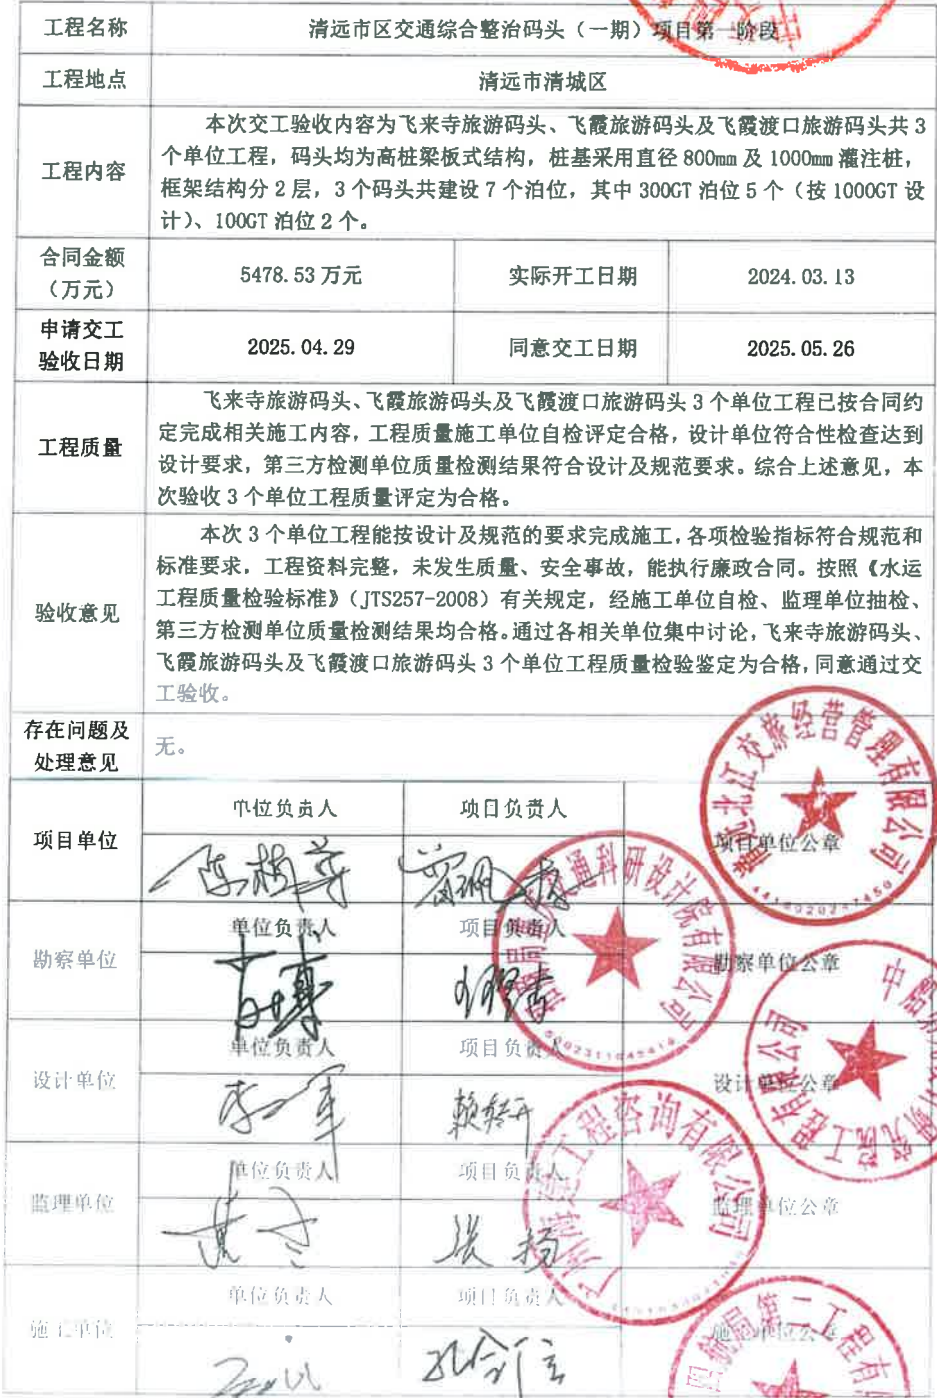 工程名称
清远市区交通综合整治码头（一期）项目第一阶段
工程地点
清远市清城区
工程内容
本次交工验收内容为飞来寺旅游码头、飞霞旅游码头及飞霞渡口旅游码头共 3
个单位工程，码头均为高桩梁板式结构，桩基采用直径 800mm 及 1000mm 灌注桩，
框架结构分 2 层，3 个码头共建设 7 个泊位，其中 300GT 泊位 5 个（按 1000GT 设
计）、100GT 泊位 2 个。
合同金额
（万元）
5478.53 万元
实际开工日期
2024.03.13
申请交工
验收日期
2025.04.29
同意交工日期
2025.05.26
工程质量
飞来寺旅游码头、飞霞旅游码头及飞霞渡口旅游码头 3 个单位工程已按合同约
定完成相关施工内容，工程质量施工单位自检评定合格，设计单位符合性检查达到
设计要求，第三方检测单位质量检测结果符合设计及规范要求。综合上述意见，本
次验收 3 个单位工程质量评定为合格。
验收意见
本次 3 个单位工程能按设计及规范的要求完成施工，各项检验指标符合规范和
标准要求，工程资料完整，未发生质量、安全事故，能执行廉政合同。按照《水运
工程质量检验标准》（JTS257-2008）有关规定，经施工单位自检、监理单位抽检、
第三方检测单位质量检测结果均合格。通过各相关单位集中讨论，飞来寺旅游码头、
飞霞旅游码头及飞霞渡口旅游码头 3 个单位工程质量检验鉴定为合格，同意通过交
工验收。
存在问题及
处理意见
无。
项目单位
单位负责人
项目负责人
项目单位公章
北江交旅经营管理有限公司
勘察单位
单位负责人
项目负责人
勘察单位公章
交通科研设计院有限公司
设计单位
单位负责人
项目负责人
设计单位公章
研究院工程有限公司
李军
监理单位
单位负责人
项目负责人
监理单位公章
工程咨询有限公司
张扬
施工单位
单位负责人
项目负责人
施工单位公章
四航局第二工程有